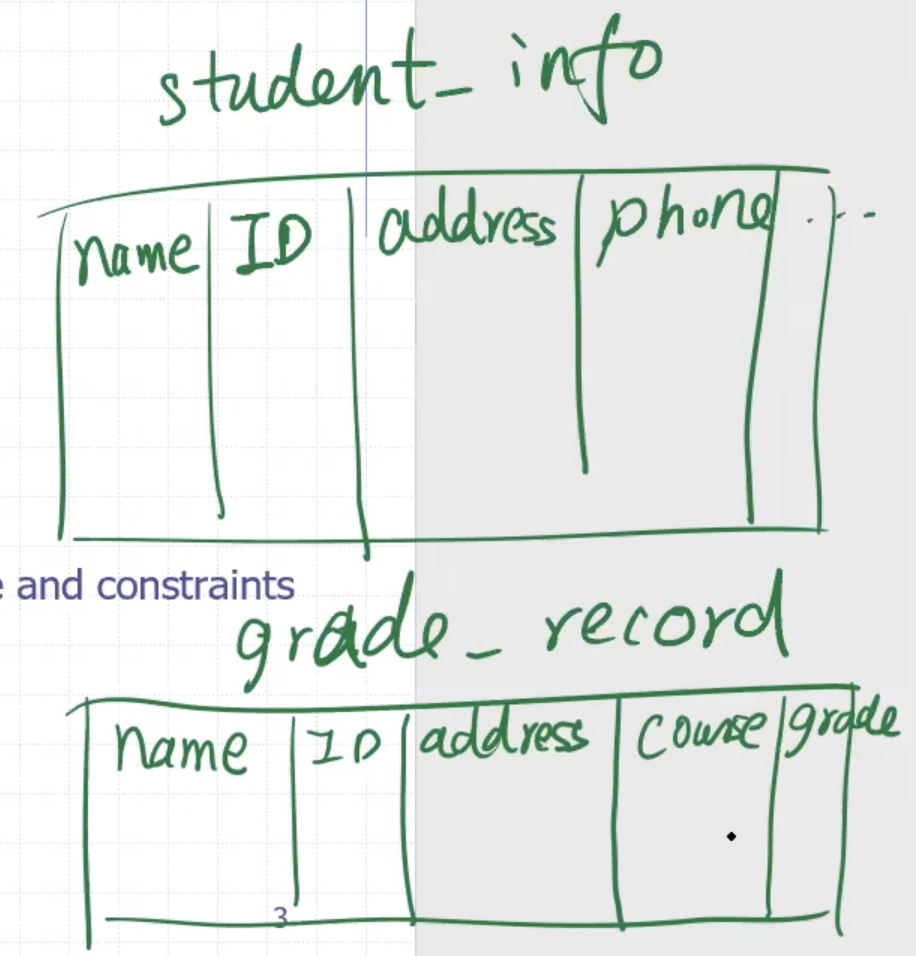 student_info
name ID address phone ...
and constraints
grade_record
name ID address course grade
3